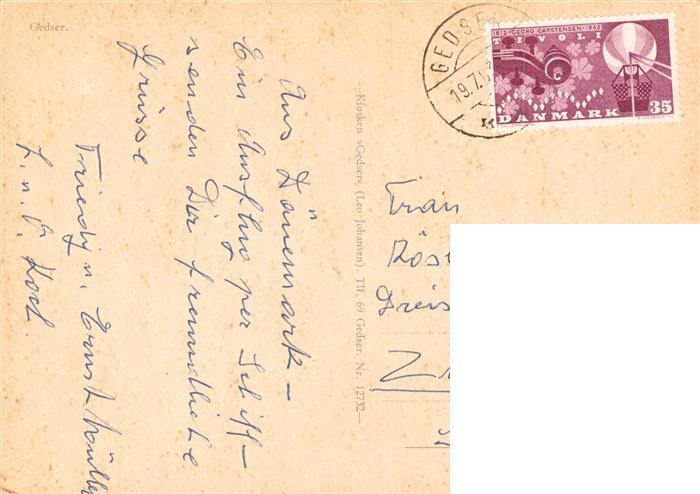 Gedser.
Aus Dänemark –
Ein Ausflug per Schiff –
senden Dir freundliche
Grüsse
Friedy u. Ernst Müller
L. u. O. Koch.
—Kiosken »Gedser« (Leo Johansen) Tlf. 69 Gedser. Nr. 12732—
GEDSER
19.7.
1812·GEORG CARSTENSEN·1962
TIVOLI
DANMARK
35
Frau